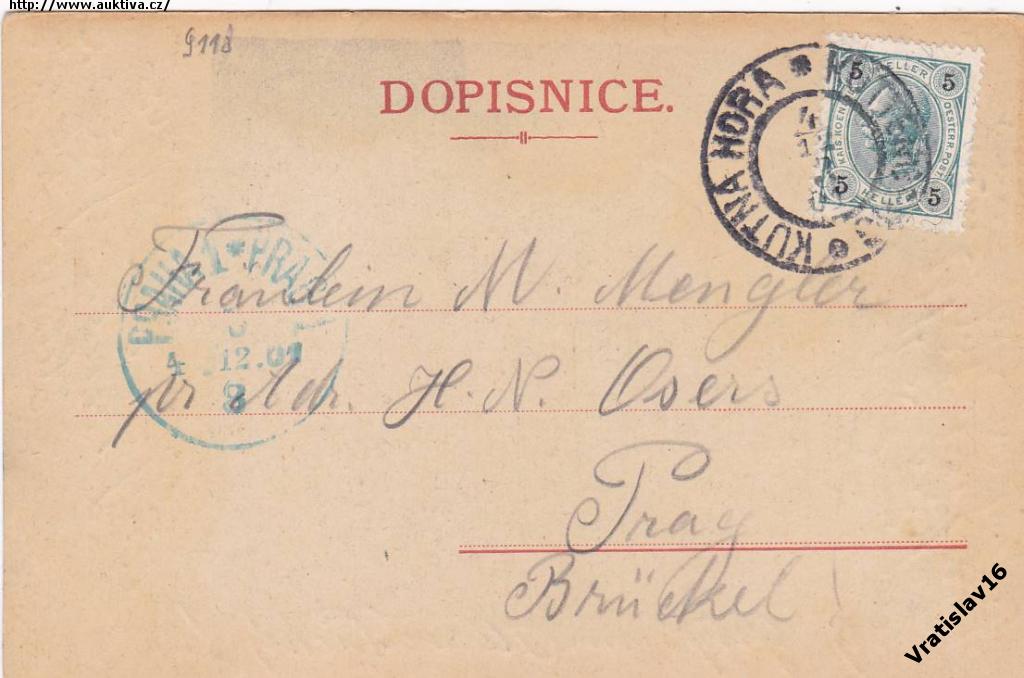 http://www.auktiva.cz/
9118
DOPISNICE.
KUTNÁ HORA *
5 HELLER 5
KAIS. KOEN. OESTERR. POST
5 HELLER 5
PRAHA 1 * PRAG
4 12.01
8
Fräulein M. Mengler
pr Adr. H. N. Osers
Prag
Brückel!
Vratislav16